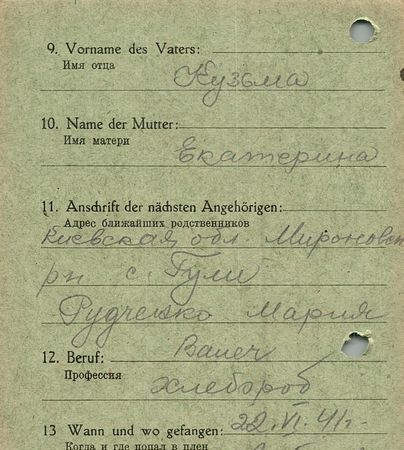 9. Vorname des Vaters:
Имя отца
Кузьма
10. Name der Mutter:
Имя матери
Екатерина
11. Anschrift der nächsten Angehörigen:
Адрес ближайших родственников
Киевская обл. Мироновск
рн с. Гули
Рудченко Мария
12. Beruf: Bauer
Профессия
хлебороб
13 Wann und wo gefangen: 22.VI.41 г.
Когда и где попал в плен